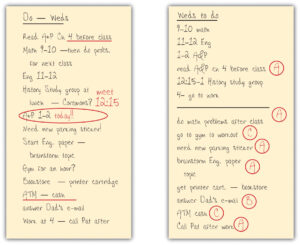 Do — Weds
Read A+P Ch 4 before class
Math 9-10 — then do probs.
for next class
Eng 11-12
History Study group at
lunch — Cortmans? meet 12:15
A+P 1-2 today!!
Need new parking sticker!
Start Eng. paper —
brainstorm topic
Gym for an hour?
Bookstore — printer cartridge
ATM — cash
answer Dad's e-mail
Work at 4 — call Pat after
Weds to do
9-10 math
11-12 Eng
1-2 A+P
read A+P ch 4 before class A
12:15-1 History study group
4- go to work
do math problems after class A
go to gym to workout C
new parking sticker A
brainstorm Eng. paper A
topic
get printer cart. — bookstore
answer Dad's e-mail B
ATM cash C
Call Pat after work A